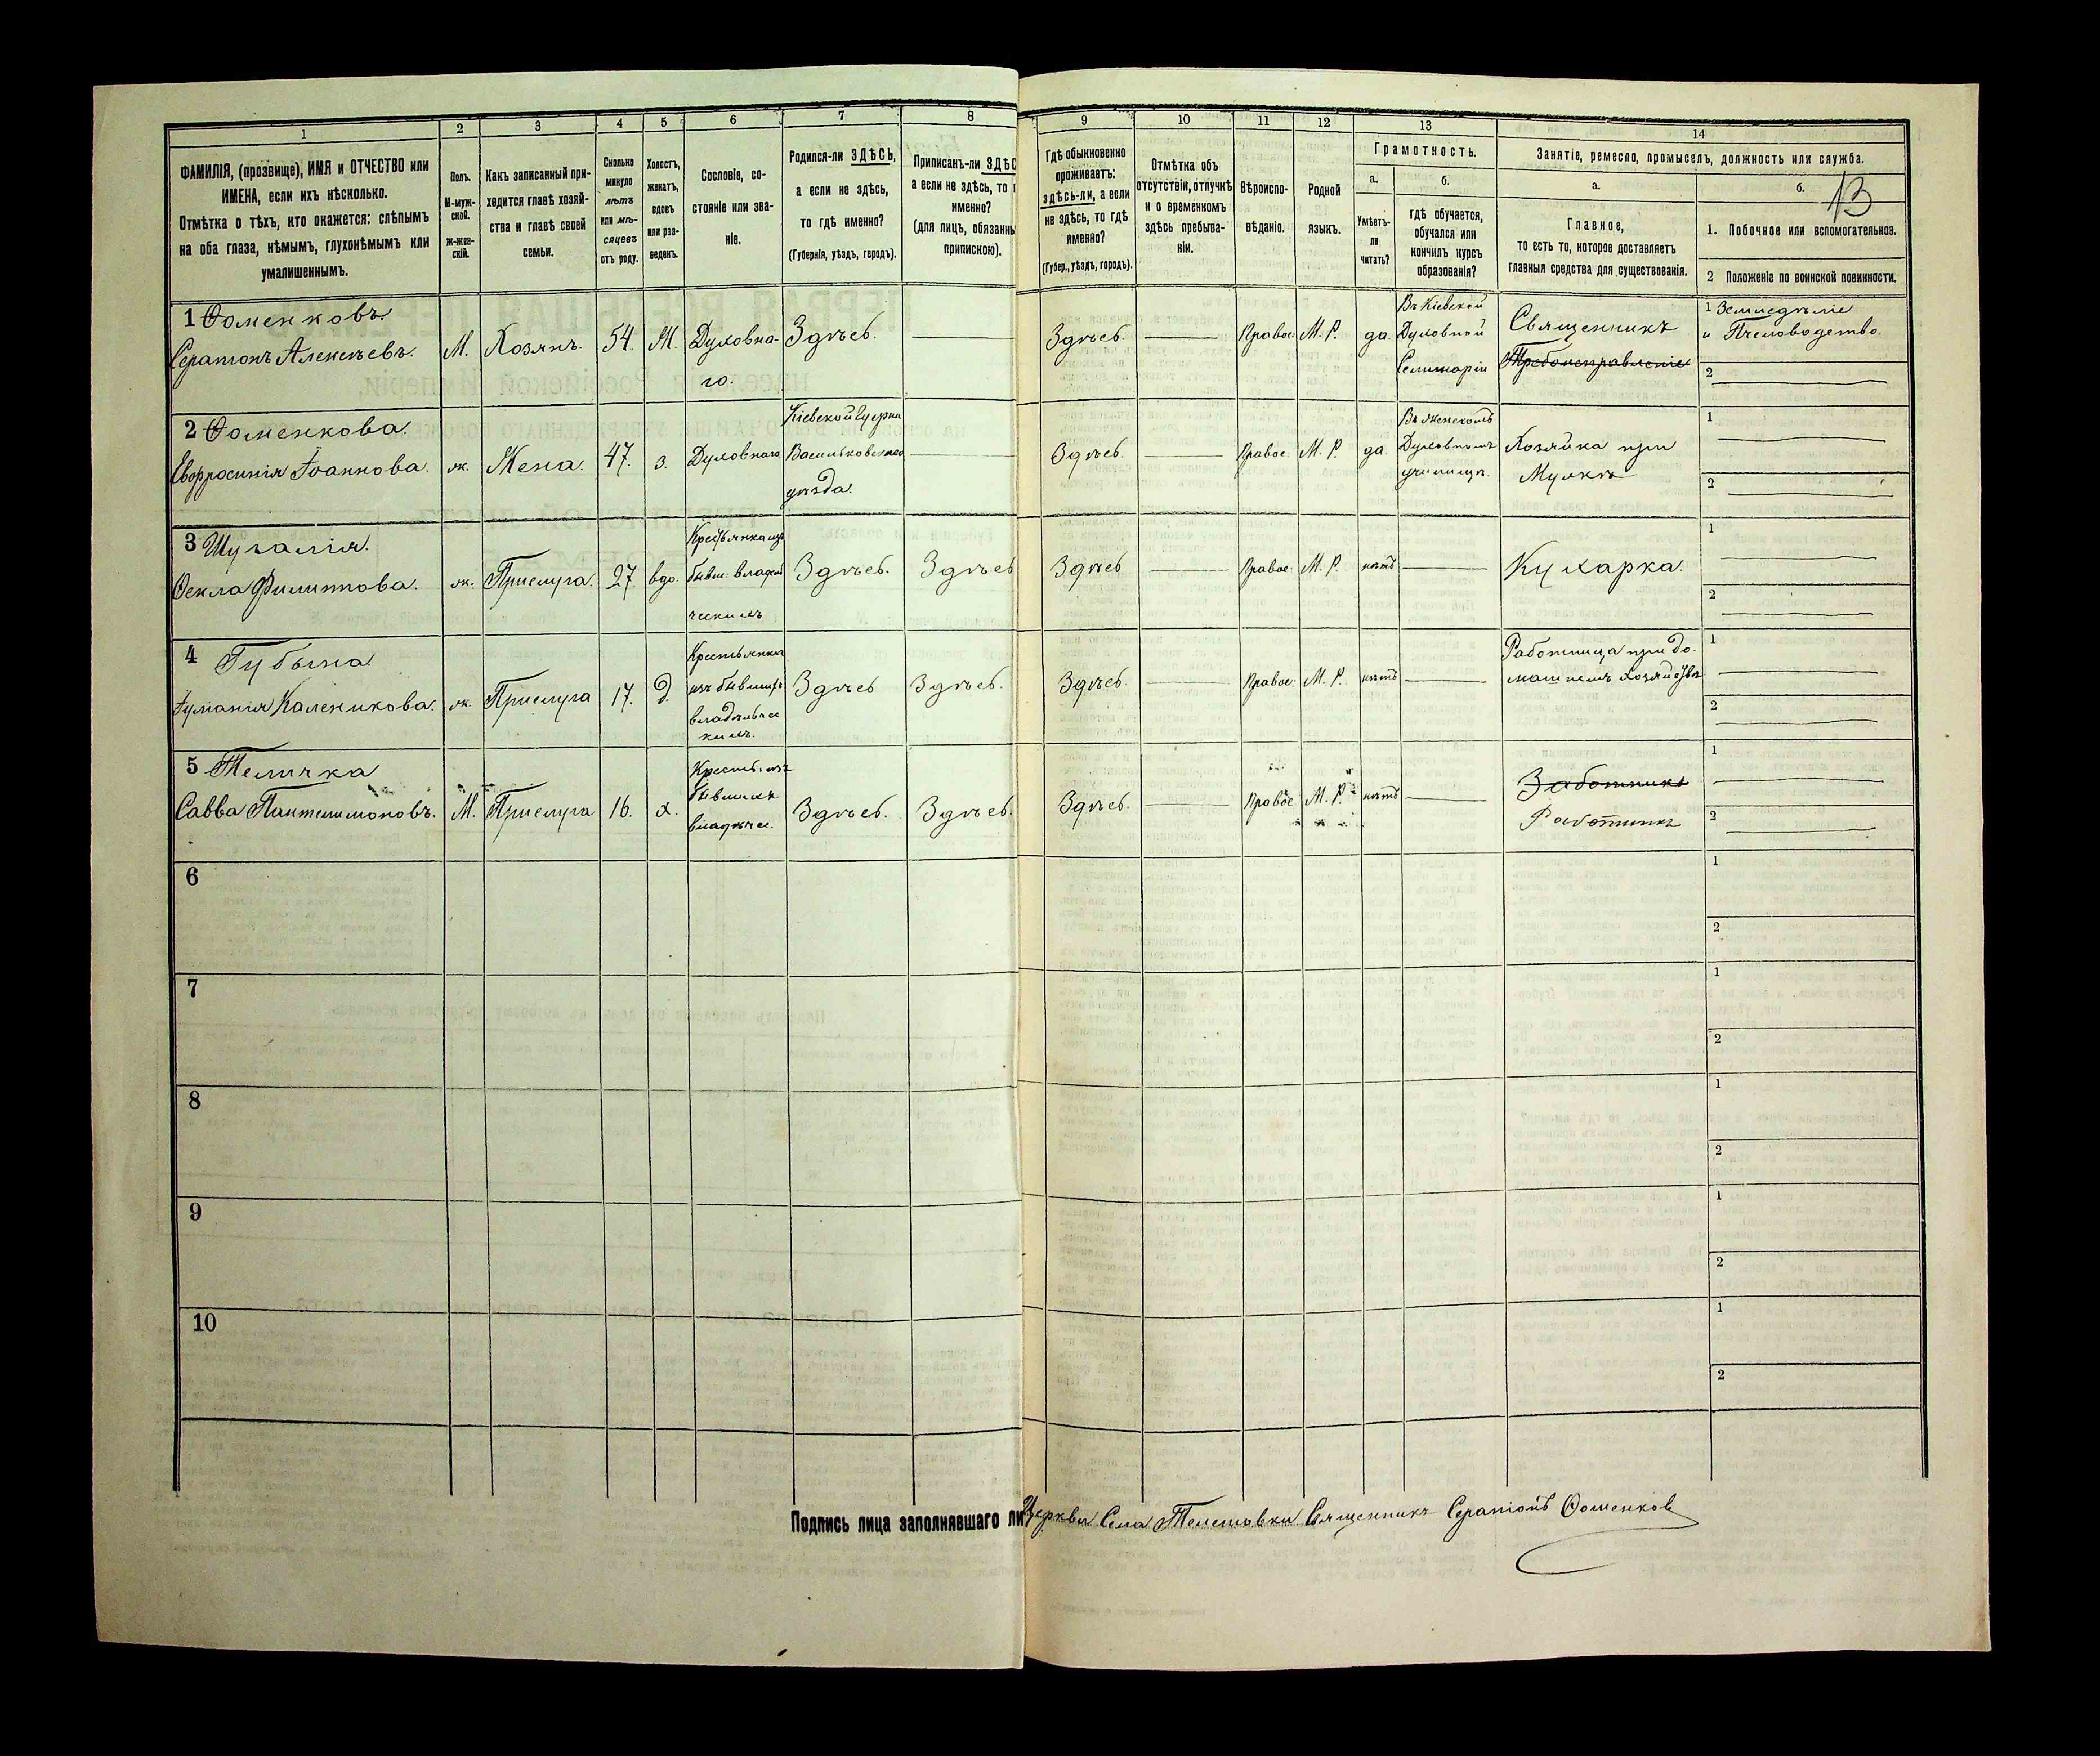 1
2
3
4
5
6
7
8
ФАМИЛІЯ, (прозвище), ИМЯ и ОТЧЕСТВО или
ИМЕНА, если ихъ нѣсколько.
Отмѣтка о тѣхъ, кто окажется: слѣпымъ
на оба глаза, нѣмымъ, глухонѣмымъ или
умалишеннымъ.
Полъ.
М-муж-
ской.
ж-жен-
скій.
Какъ записанный при-
ходится главѣ хозяй-
ства и главѣ своей
семьи.
Сколько
минуло
лѣтъ
или мѣ-
сяцевъ
отъ роду.
Холостъ,
женатъ,
вдовъ
или раз-
веденъ.
Сословіе, со-
стояніе или зва-
ніе.
Родился-ли ЗДѢСЬ,
а если не здѣсь,
то гдѣ именно?
(Губернія, уѣздъ, городъ).
Приписанъ-ли ЗДѢС
а если не здѣсь, то г
именно?
(для лицъ, обязанны
припискою).
9
10
11
12
13
14
Гдѣ обыкновенно
проживаетъ:
здѣсь-ли, а если
не здѣсь, то гдѣ
именно?
(Губер., уѣздъ, городъ).
Отмѣтка объ
отсутствіи, отлучкѣ
и о временномъ
здѣсь пребыва-
ніи.
Вѣроиспо-
вѣданіе.
Родной
языкъ.
Грамотность.
а.
Умѣетъ-
ли
читать?
б.
гдѣ обучается,
обучался или
кончилъ курсъ
образованія?
Занятіе, ремесло, промыселъ, должность или служба.
а.
Главное,
то есть то, которое доставляетъ
главныя средства для существованія.
б.
13
1. Побочное или вспомогательное.
2 Положеніе по воинской повинности.
1 Ѳоменковъ
Серапіонъ Алексѣевъ.
М.
Хозяинъ.
54.
Ж.
Духовна-
го.
Здѣсь.
Здѣсь.
Правос.
М. Р.
да.
Въ Кіевской
Духовной
Семинаріи
Священникъ
Требоисправленіе
1 Земледѣліе
и Пчеловодство.
2
2 Ѳоменкова
Евфросинія Іоаннова.
ж.
Жена.
47.
з.
Духовнаго
Кіевской Губерніи
Васильковскаго
уѣзда.
Здѣсь.
Правос.
М. Р.
да
Въ Женскомъ
Духовномъ
училищѣ.
Хозяйка при
Мужѣ
1
2
3 Шугалія.
Ѳекла Филиппова.
ж.
Прислуга.
27.
вдо.
Крестьянка изъ
бывш. владѣль
ческихъ
Здѣсь.
Здѣсь
Здѣсь
Правос.
М. Р.
нѣтъ
Кухарка.
1
2
4 Губына
Іуліанія Каленикова.
ж.
Прислуга
17.
д.
Крестьянка
изъ бывшихъ
владѣльчес
кихъ.
Здѣсь
Здѣсь.
Здѣсь.
Правос.
М. Р.
нѣтъ
Работница при до-
машнемъ хозяйствѣ
1
2
5 Теличка
Савва Пантелимоновъ.
М.
Прислуга
16.
х.
Крестьян. изъ
бывшихъ
владѣльчес.
Здѣсь.
Здѣсь.
Здѣсь.
Правос
М. Р.
нѣтъ
Работникъ
1
2
6
1
2
7
1
2
8
1
2
9
1
2
10
1
2
Подпись лица заполнявшаго ли
Церкви Села Телешовки Священникъ Серапіонъ Ѳоменковъ